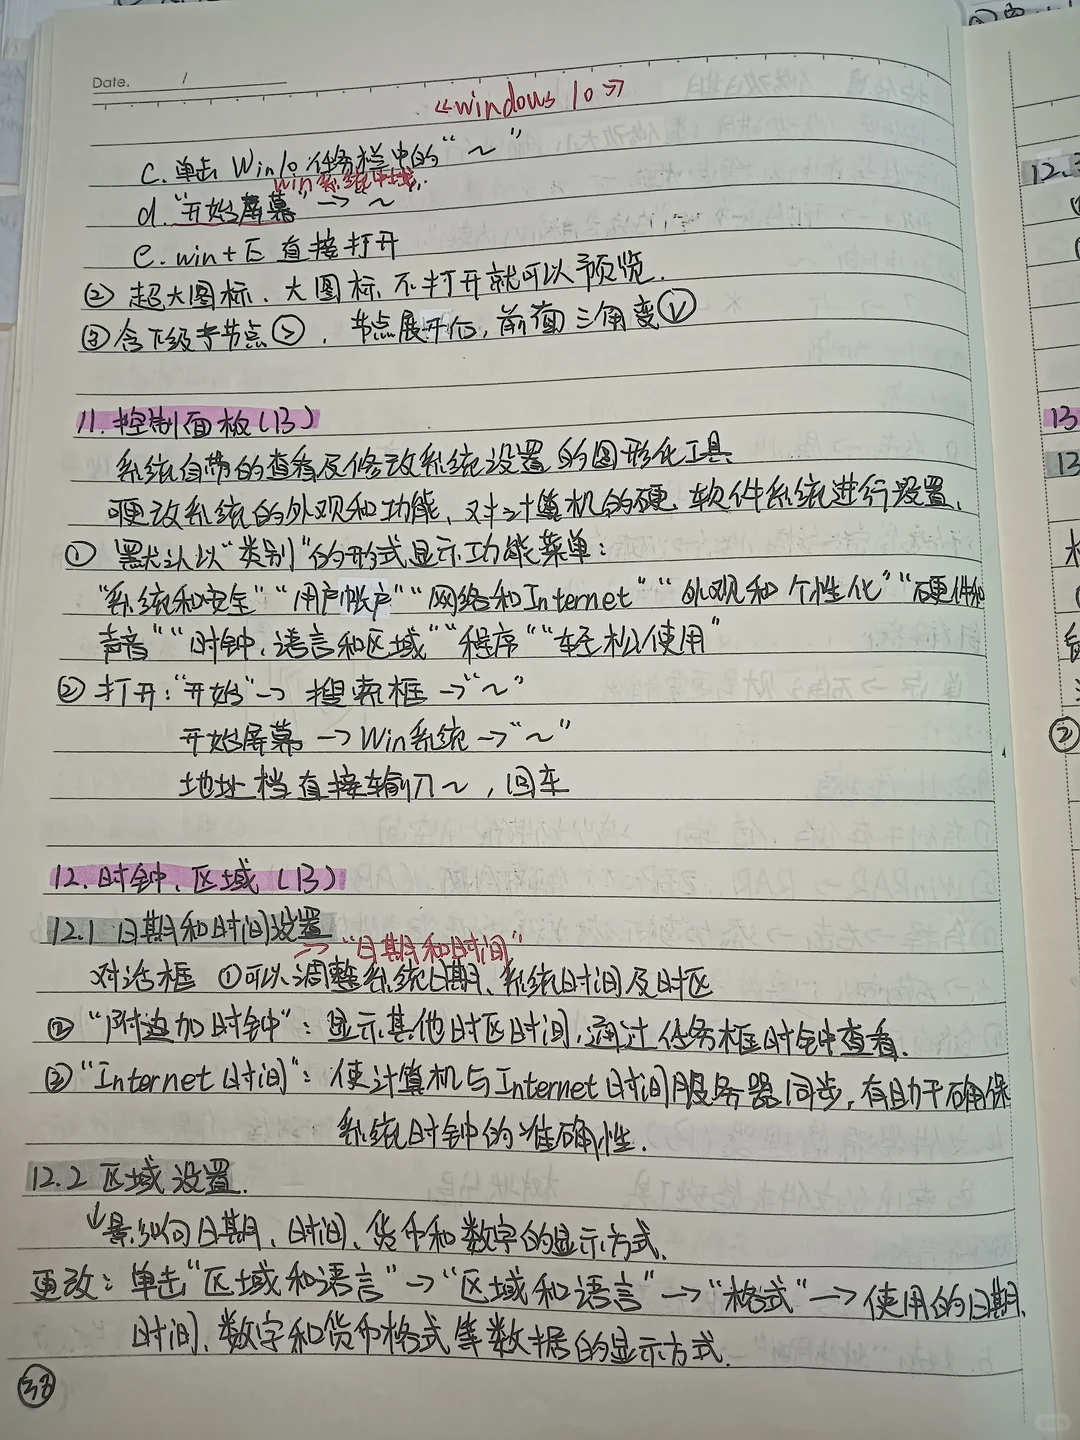 Date. /
《windows 10》
c. 单击 Win10 任务栏中的“~”
win系统中域.
d. “开始屏幕” → “~”
e. win+E 直接打开
② 超大图标、大图标, 不打开就可以预览.
③ 含下级子节点 >, 节点展开后, 前面三角变 ∨
11. 控制面板(13)
系统自带的查看及修改系统设置的图形化工具
更改系统的外观和功能、对计算机的硬、软件系统进行设置.
① 默认以“类别”的形式显示功能菜单:
“系统和安全”“用户帐户”“网络和Internet”“外观和个性化”“硬件和
声音”“时钟、语言和区域”“程序”“轻松使用”
② 打开: “开始” → 搜索框 → “~”
开始屏幕 → Win系统 → “~”
地址档直接输入~, 回车
12. 时钟、区域(13)
12.1 日期和时间设置
→ “日期和时间”
对话框 ①可以调整系统日期、系统时间及时区
② “附边加时钟”: 显示其他时区时间, 通过任务框时钟查看.
③ “Internet时间”: 使计算机与Internet时间服务器同步, 有助于确保
系统时钟的准确性.
12.2 区域设置.
↓影响日期、时间、货币和数字的显示方式.
更改: 单击“区域和语言” → “区域和语言” → “格式” → 使用的日期、
时间、数字和货币格式等数据的显示方式.
12.
13
13
②